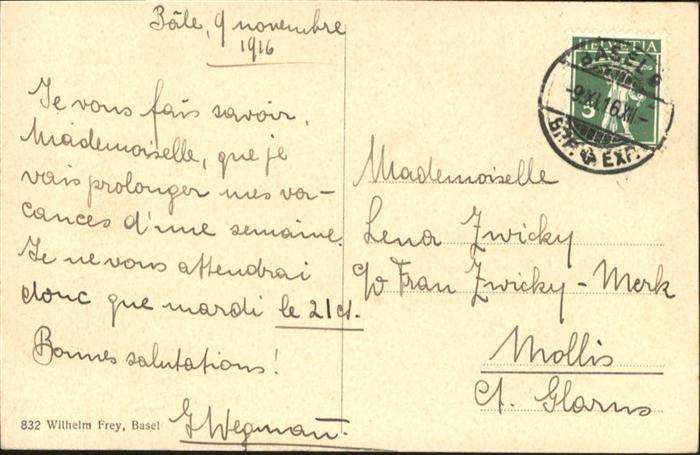 Bâle, 9 novembre
1916
Je vous fais savoir,
Mademoiselle, que je
vais prolonger mes va-
cances d'une semaine.
Je ne vous attendrai
donc que mardi le 21 ct.
Bonnes salutations!
832 Wilhelm Frey, Basel
HELVETIA
5
BASEL 2
-9.XI.16.XII-
BRF. EXP.
Mademoiselle
Lena Zwicky
c/o Frau Zwicky-Merk
Mollis
Ct. Glarus